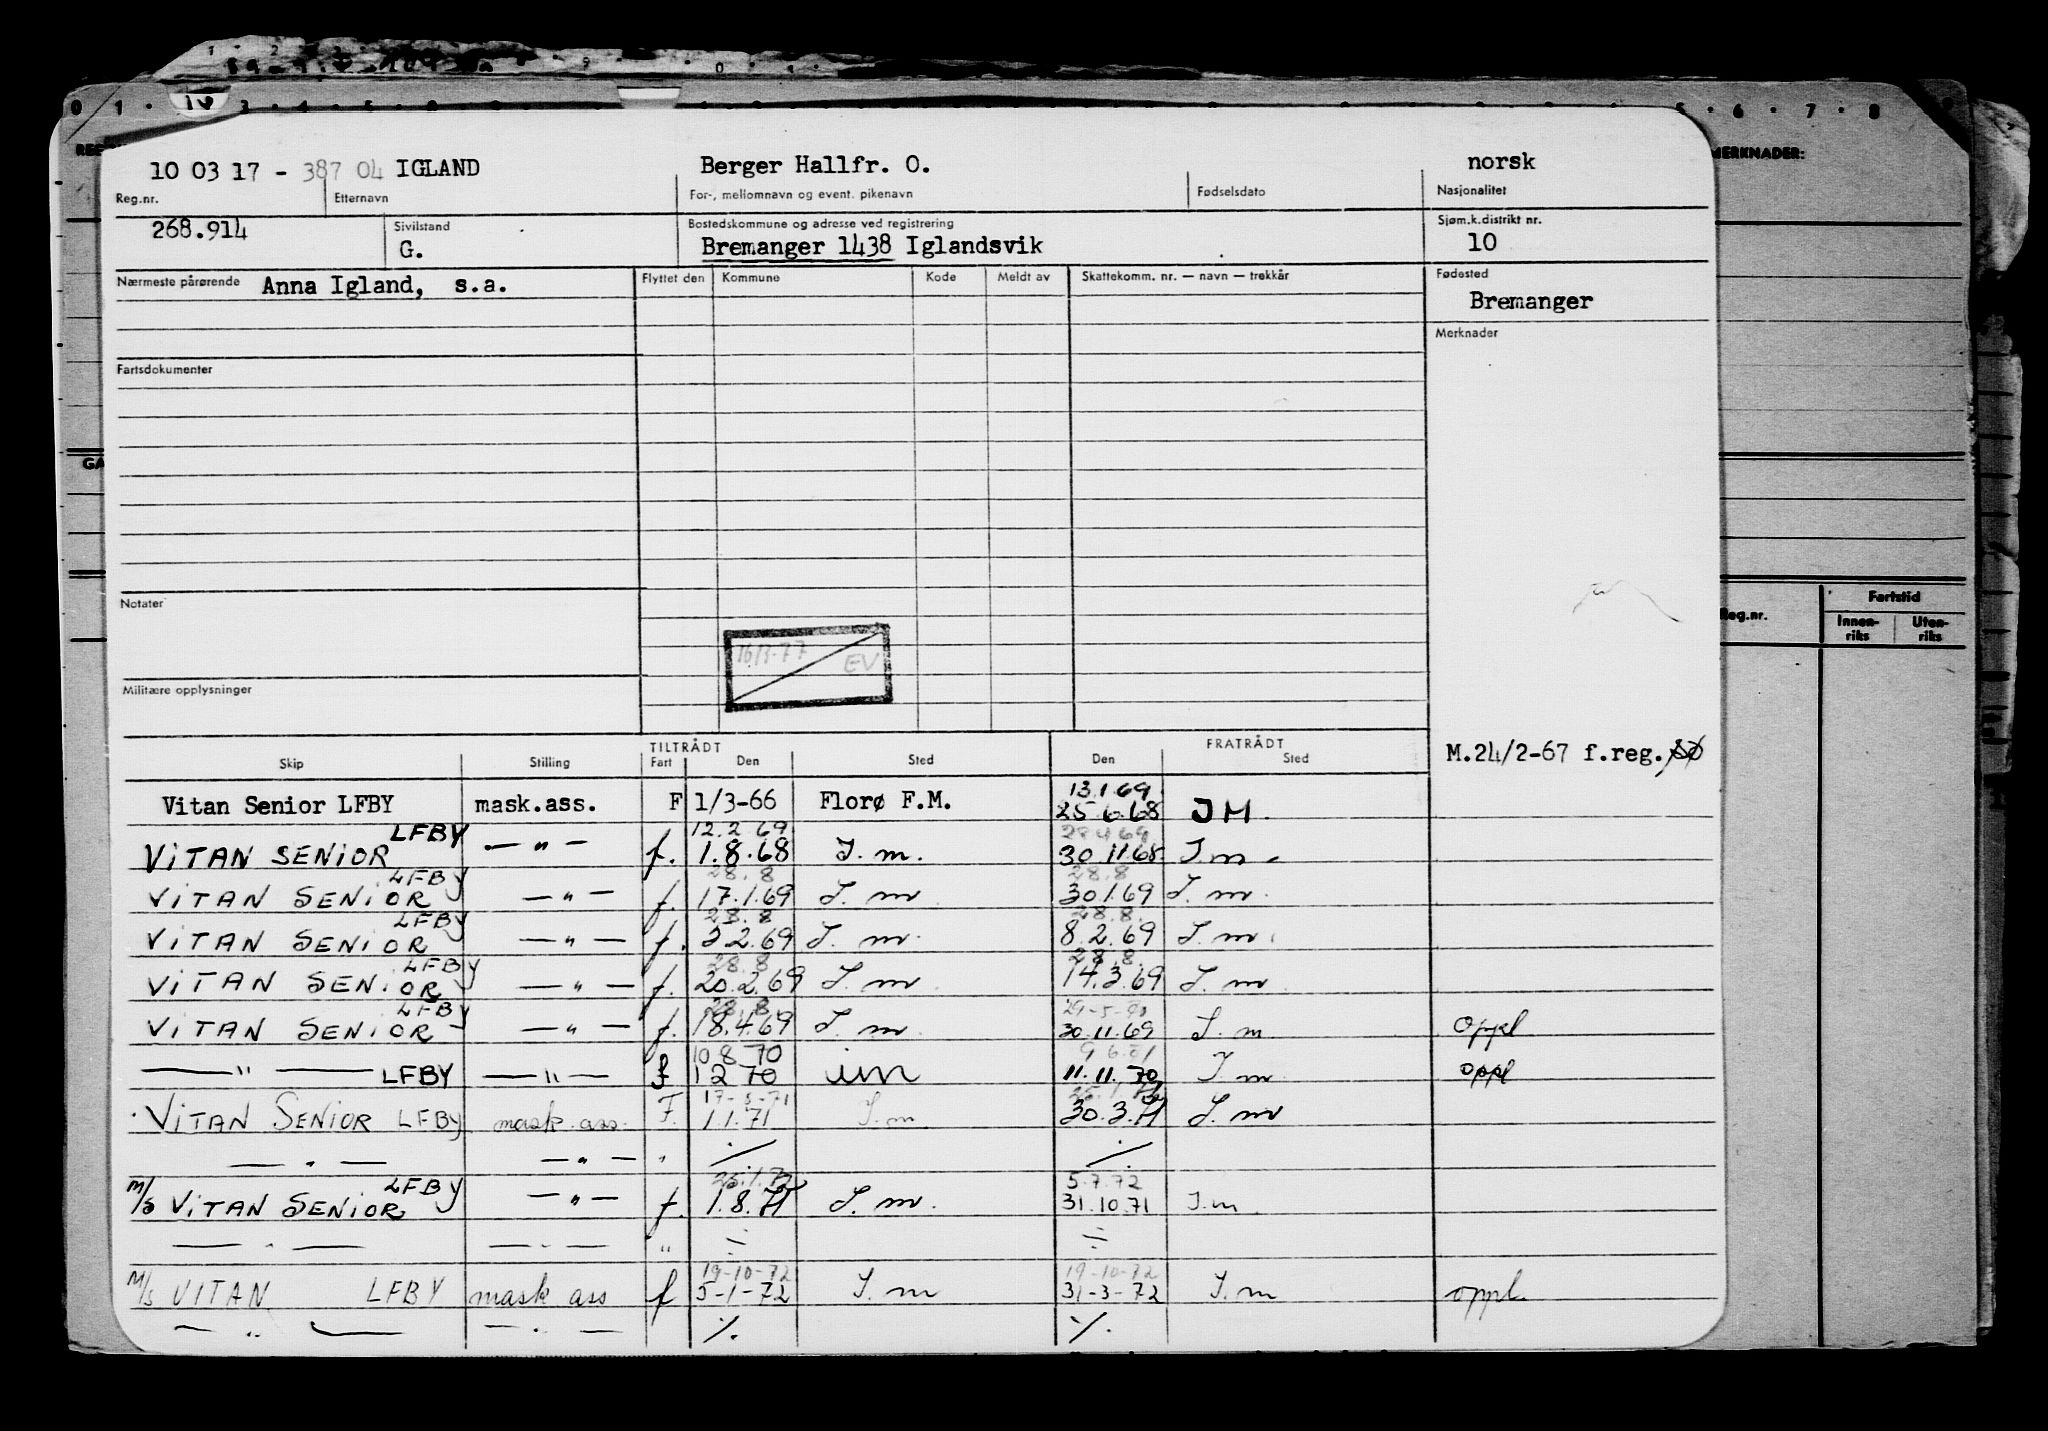 0 1 3 4 5 6 7 8
MERKNADER:
10 03 17 - 387 04 IGLAND Berger Hallfr. O. norsk
Reg.nr. Etternavn For-, mellomnavn og event. pikenavn Fødselsdato Nasjonalitet
268.914 Sivilstand Bostedskommune og adresse ved registrering Sjøm.k.distrikt nr.
G. Bremanger 1438 Iglandsvik 10
Nærmeste pårørende Anna Igland, s.a. Flyttet den Kommune Kode Meldt av Skattekomm. nr. — navn — trekkår Fødested
Bremanger
Merknader
Fartsdokumenter
Notater
Reg.nr. Fartstid
Innenriks Utenriks
16/3-77 EV
Militære opplysninger
TILTRÅDT FRATRÅDT
Skip Stilling Fart Den Sted Den Sted
M.24/2-67 f.reg.
13.1.69
Vitan Senior LFBY mask.ass. F 1/3-66 Florø F.M. 25.6.68 JM.
LFBY 12.2.69 28.4.69
VITAN SENIOR — " — f. 1.8.68 I.m. 30.11.68 I.m.
LFBY 28.8 28.8
VITAN SENIOR — " — f. 17.1.69 I.m. 30.1.69 I.m.
LFBY 28.8 28.8.
VITAN SENIOR — " — f. 3.2.69 I.m. 8.2.69 I.m.
LFBY 28.8 28.8.
VITAN SENIOR — " — f. 20.2.69 I.m. 14.3.69 I.m.
LFBY 28.8. 29-5-70
VITAN SENIOR — " — f. 18.4.69 I.m. 30.11.69 I.m. oppl
10 8 70
— " — LFBY — " — f 1 2 70 im 11.11.70 I.m. oppl
17-5-71
VITAN SENIOR LFBY mask.ass. F. 1.1.71 I.m. 30.3.71 I.m.
— " — — " — " ./. ./.
LFBY 5.7.72
M/S VITAN SENIOR — " — f. 1.8.71 I.m. 31.10.71 I.m.
— " — — " — " ÷ ÷
19-10-72 19-10-72
M/S VITAN LFBY mask ass f 5-1-72 I.m 31-3-72 I.m oppl.
— " — — " — ./. ./.